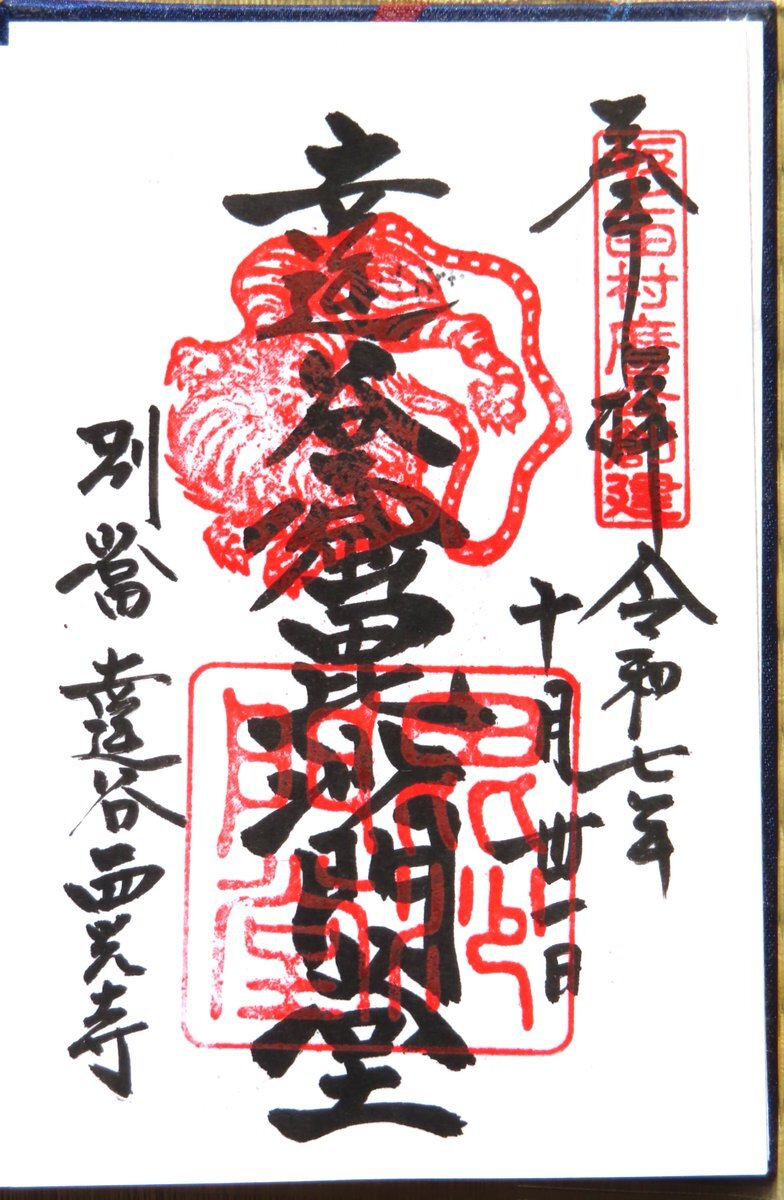 奉拝
坂上田村麿創建
令和七年
十月卅一日
達谷窟毘沙門堂
毘沙門堂
別當 達谷西光寺